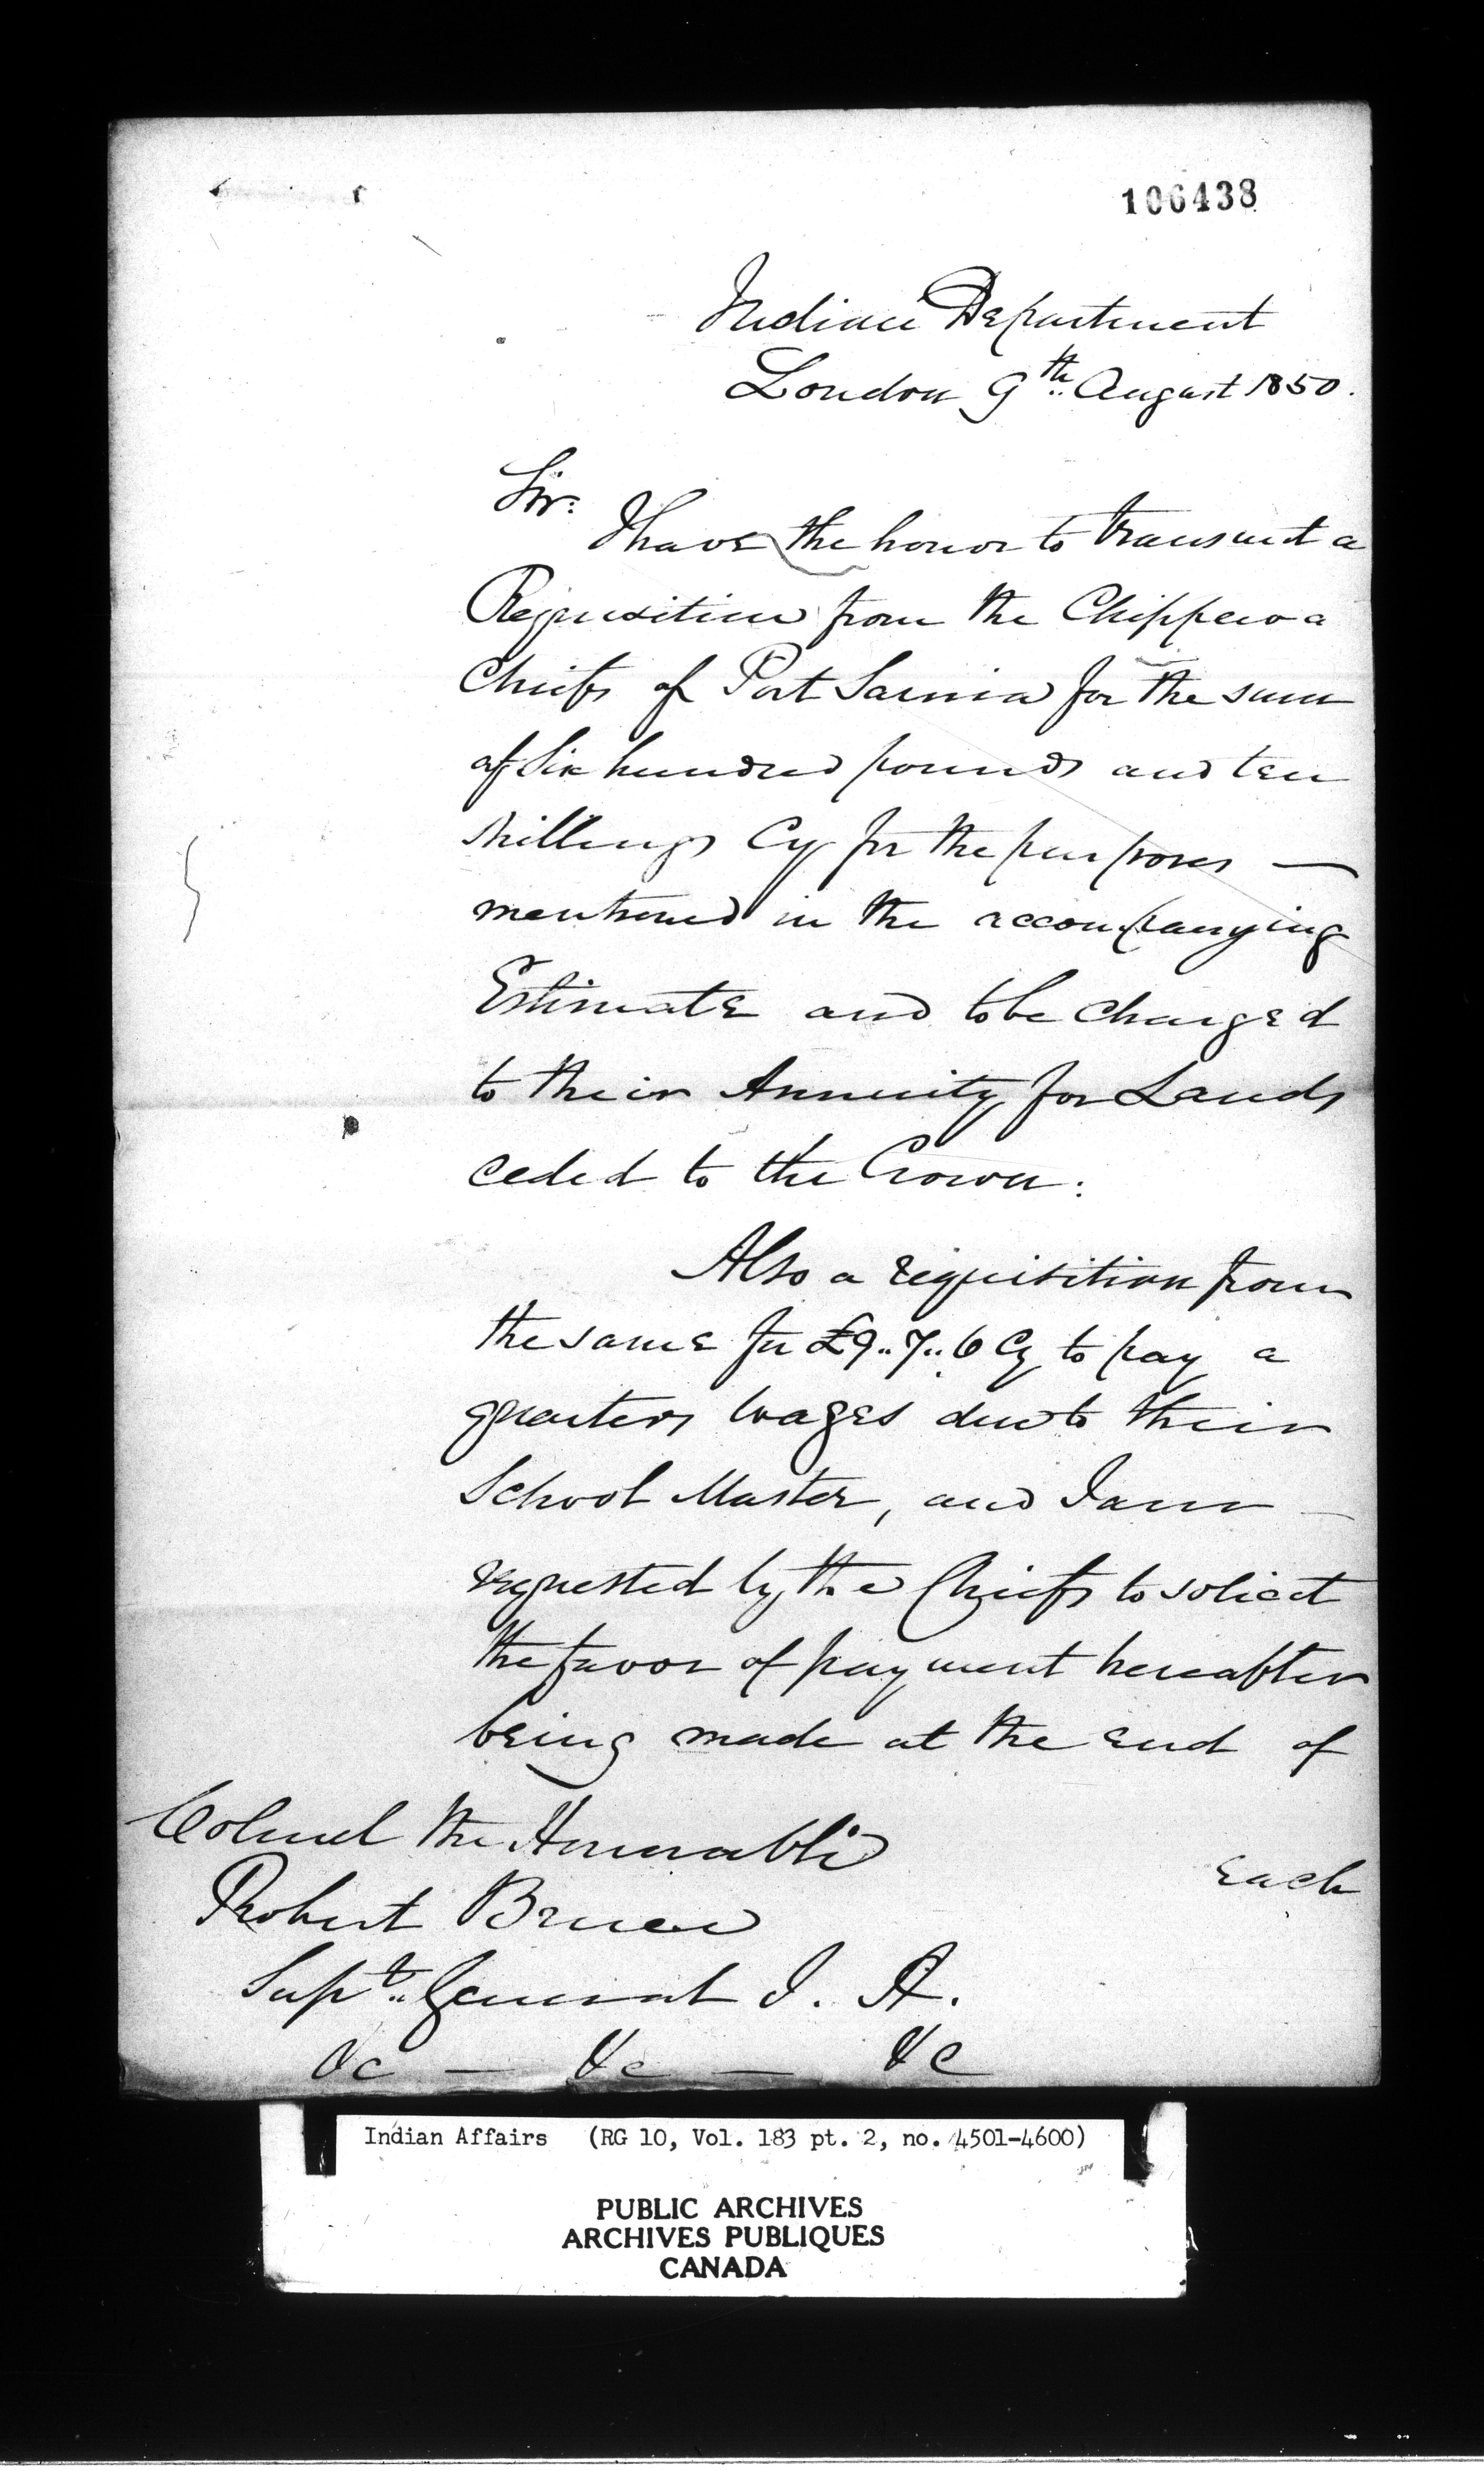 106438
Indian Department
London 9th August 1850.
Sir:
I have the honor to transmit a
Requisition from the Chippewa
Chiefs of Port Sarnia for the sum
of Six hundred pounds and ten
shillings Cy for the purposes —
mentioned in the accompanying
Estimate and to be charged
to their Annuity for Lands
ceded to the Crown:
Also a requisition from
the same for £9..7..6 Cy to pay a
quarters wages due to their
School Master, and I am —
requested by the Chiefs to solicit
the favor of payment hereafter
being made at the end of
each
Colonel the Honorable
Robert Bruce
Supt. General I. A.
&c — &c — &c
Indian Affairs (RG 10, Vol. 183 pt. 2, no. 4501-4600)
PUBLIC ARCHIVES
ARCHIVES PUBLIQUES
CANADA